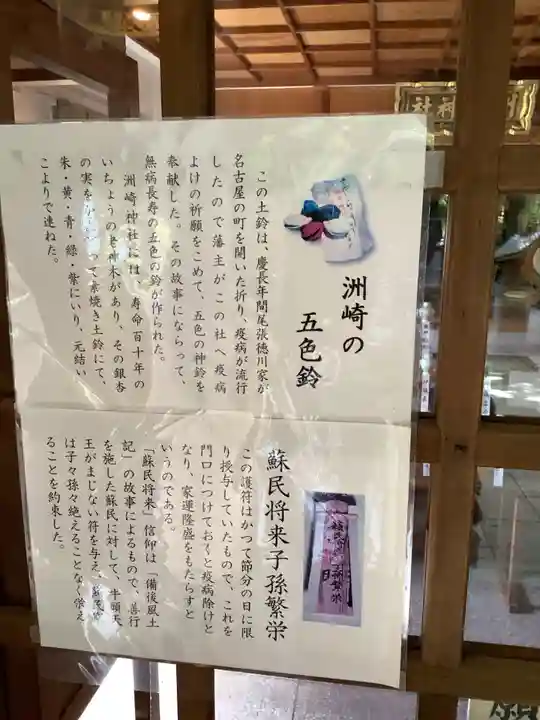 洲崎の
五色鈴
この土鈴は、慶長年間尾張徳川家が
名古屋の町を開いた折り、疫病が流行
したので藩主がこの社へ疫病
よけの祈願をこめて、五色の神鈴を
奉献した。その故事にならって、
無病長寿の五色の鈴が作られた。
洲崎神社には、寿命百十年の
いちょうの老神木があり、その銀杏
の実を
って素焼き土鈴にて、
朱・黄・青・緑・紫にいり、元結い
こよりで連ねた。
蘇民将来子孫繁栄
この護符はかつて節分の日に限
り授与していたもので、これを
門口につけておくと疫病除けと
なり、家運隆盛をもたらすと
いうのである。
「蘇民将来」信仰は「備後風土
記」の故事によるもので、善行
を施した蘇民に対して、牛頭天
王がまじない符を与え、蘇民の
は子々孫々絶えることなく栄え
ることを約束した。
蘇民将来子孫繁栄
神社